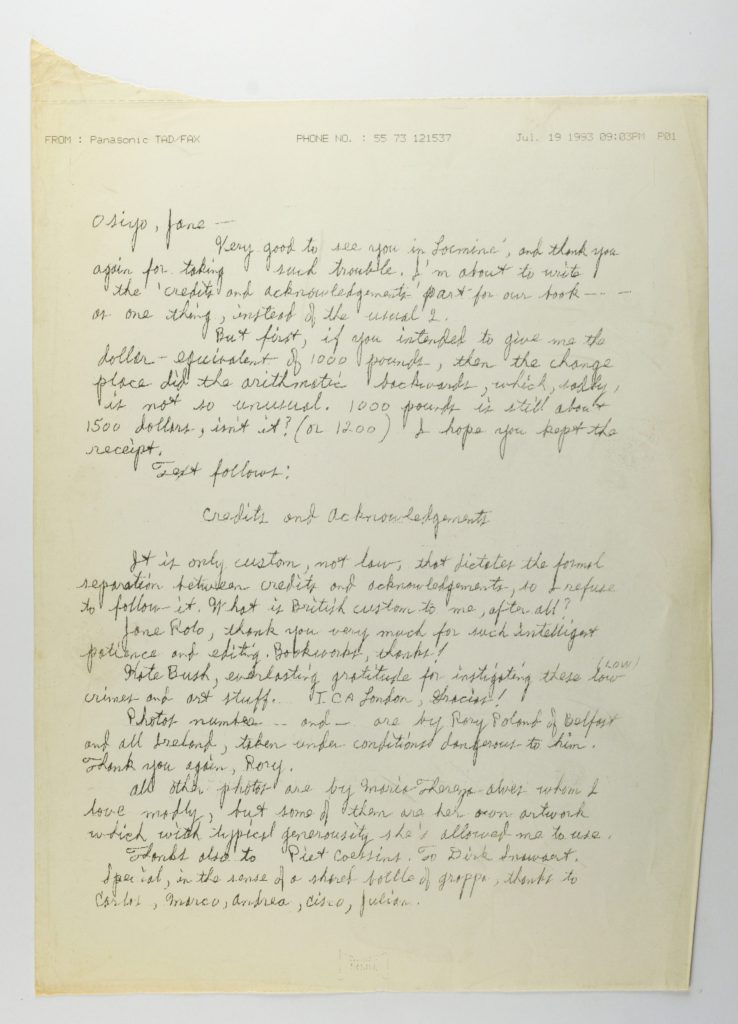 FROM : Panasonic TAD/FAX PHONE NO. : 55 73 121537 Jul. 19 1993 09:03PM P01
Osiyo, Jane —
Very good to see you in Locminé, and thank you
again for taking such trouble. I'm about to write
the 'credits and acknowledgements' part for our book — — —
as one thing, instead of the usual 2.
But first, if you intended to give me the
dollar-equivalent of 1000 pounds, then the change
place did the arithmatic backwards, which, sadly,
is not so unusual. 1000 pounds is still about
1500 dollars, isn't it? (or 1200) I hope you kept the
receipt.
Text follows:
Credits and Acknowledgements
It is only custom, not law, that dictates the formal
separation between credits and acknowledgements, so I refuse
to follow it. What is British custom to me, after all?
Jane Rolo, thank you very much for such intelligent
patience and editing. Bookworks, thanks!
Kate Bush, everlasting gratitude for instigating these low (LOW)
crimes and art stuff. I.C.A. London, Gracias!
Photos number -- and -- are by Rory Poland of Belfast
and all Ireland, taken under conditions dangerous to him.
Thank you again, Rory.
All other photos are by Maria Thereza Alves whom I
love madly, but some of them are her own artwork
which with typical generousity she's allowed me to use.
Thanks also to Piet Coessins. To Dirk
Special, in the sense of a shared bottle of grappa, thanks to
Carlos, Marco, Andrea, Cisco, Julian.